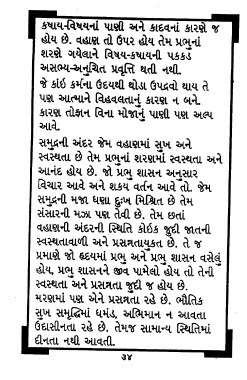 કષાય-વિષયનાં પાણી અને કાદવનાં કારણે જ
હોય છે. વહાણ તો ઉપર હોય તેમ પ્રભુનાં
શરણે ગયેલાને વિષય-કષાયની પકકડ
અસભ્ય-અનુચિત પ્રવૃત્તિ થતી નથી.
જે કાંઇ કર્મના ઉદયથી થોડા ઉપદ્રવો થાય તે
પણ આત્માને વિહવલતાનું કારણ ન બને.
કારણ તોફાન વિના મોજાનું પાણી પણ અલ્પ
આવે.
સમુદ્રની અંદર જેમ વહાણમાં સુખ અને
સ્વસ્થતા છે તેમ પ્રભુનાં શરણમાં સ્વસ્થતા અને
આનંદ હોય છે. જો પ્રભુ શાસન અનુસાર
વિચાર આવે અને શકય વર્તન આવે તો. જેમ
સમુદ્રની મજા ઘણા દુઃખ મિશ્રિત છે તેમ
સંસારની મઝા પણ તેવી છે. તેમ છતાં
વહાણની અંદરની સ્થિતિ કોઇક જુદી જાતની
સ્વસ્થતાવાળી અને પ્રસન્નતાયુકત છે. તે જ
પ્રમાણે જો હૃદયમાં પ્રભુ અને પ્રભુ શાસન વસેલું
હોય, પ્રભુ શાસનને જીવ પામેલો હોય તો તેની
સ્વસ્થતા અને પ્રસન્નતા જુદી જ હોય છે.
મરણમાં પણ એને પ્રસન્નતા રહે છે. ભૌતિક
સુખ સમૃદ્ધિમાં ધમંડ, અભિમાન ન આવતા
ઉદાસીનતા રહે છે. તેમજ સામાન્ય સ્થિતિમાં
દીનતા નથી આવતી.
૩૪